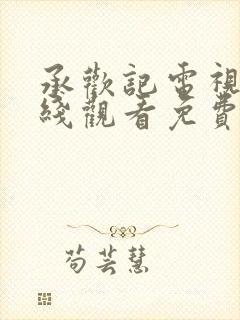 承歡記電視
綫觀看免費
苟芸慧